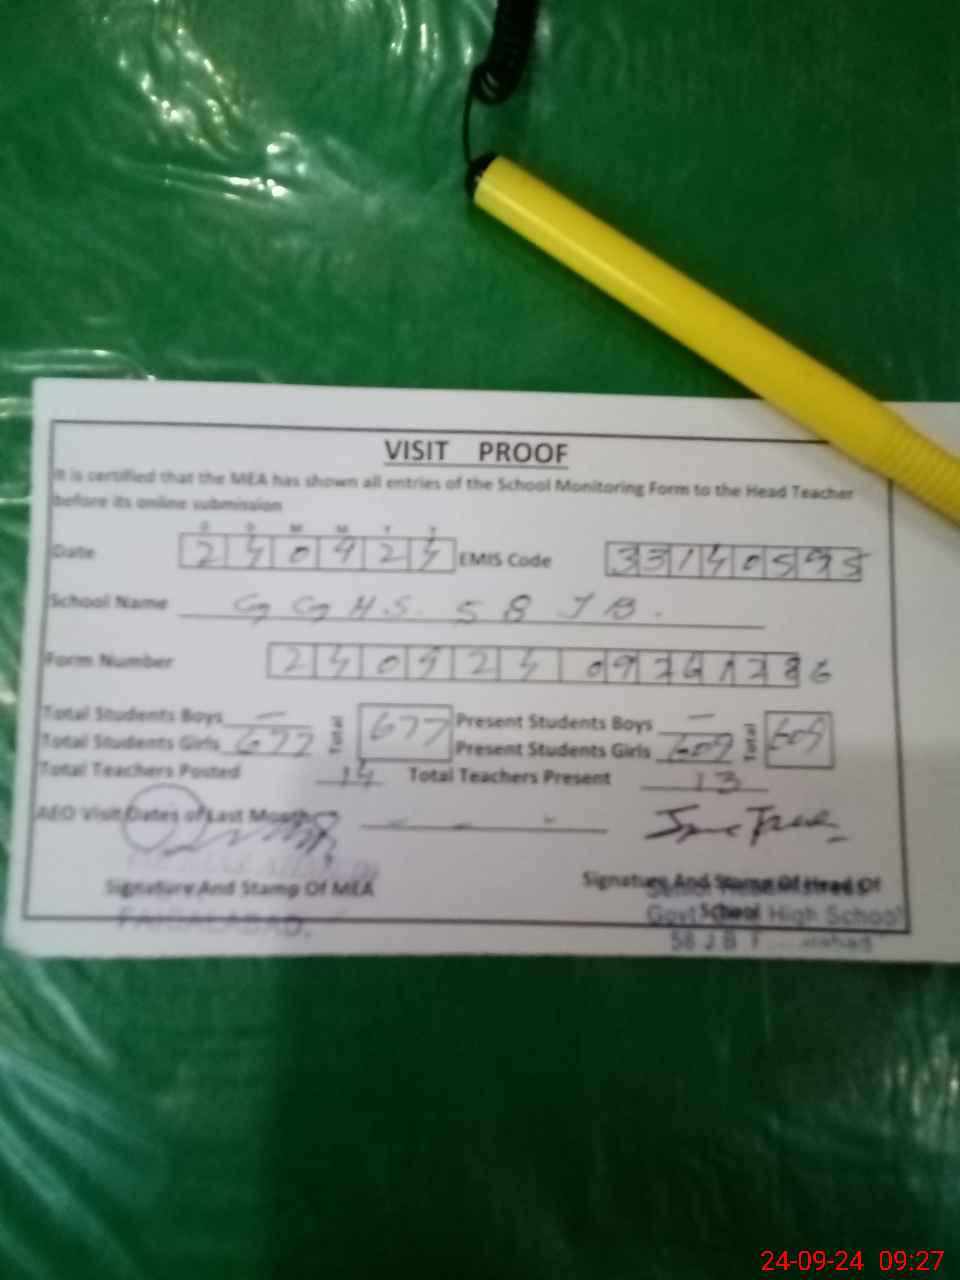 VISIT PROOF
It is certified that the MEA has shown all entries of the School Monitoring Form to the Head Teacher
before its online submission
D D M M Y Y
Date 240924 EMIS Code 33140595
School Name GGHS. 58 JB.
Form Number 240924
Total Students Boys — Total 677 Present Students Boys — Total 609
Total Students Girls 677 Present Students Girls 609
Total Teachers Posted 14 Total Teachers Present 13
AEO Visit Dates of Last Month
Signature And Stamp Of MEA
Signature And Stamp Of Head Of
School
FAISALABAD.
Govt High School
58 J B
24-09-24 09:27